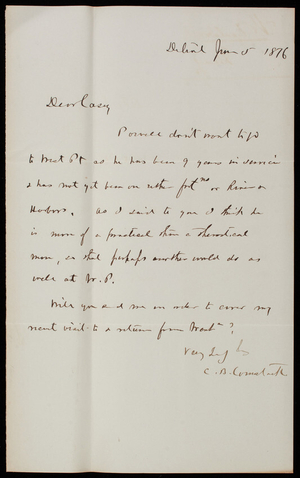 Detroit Jan 5 1876
Dear Casey
Powell don't want to go
to West Pt as he has been 9 years in service
& has not yet been on either fortns or River or
Harbors. As I said to you I think he
is more of a practical than a theoretical
man, so that perhaps another would do as
well at W. P.
Will you send me an order to cover my
recent visit to & return from Washn?
Very truly
C. B. Comstock